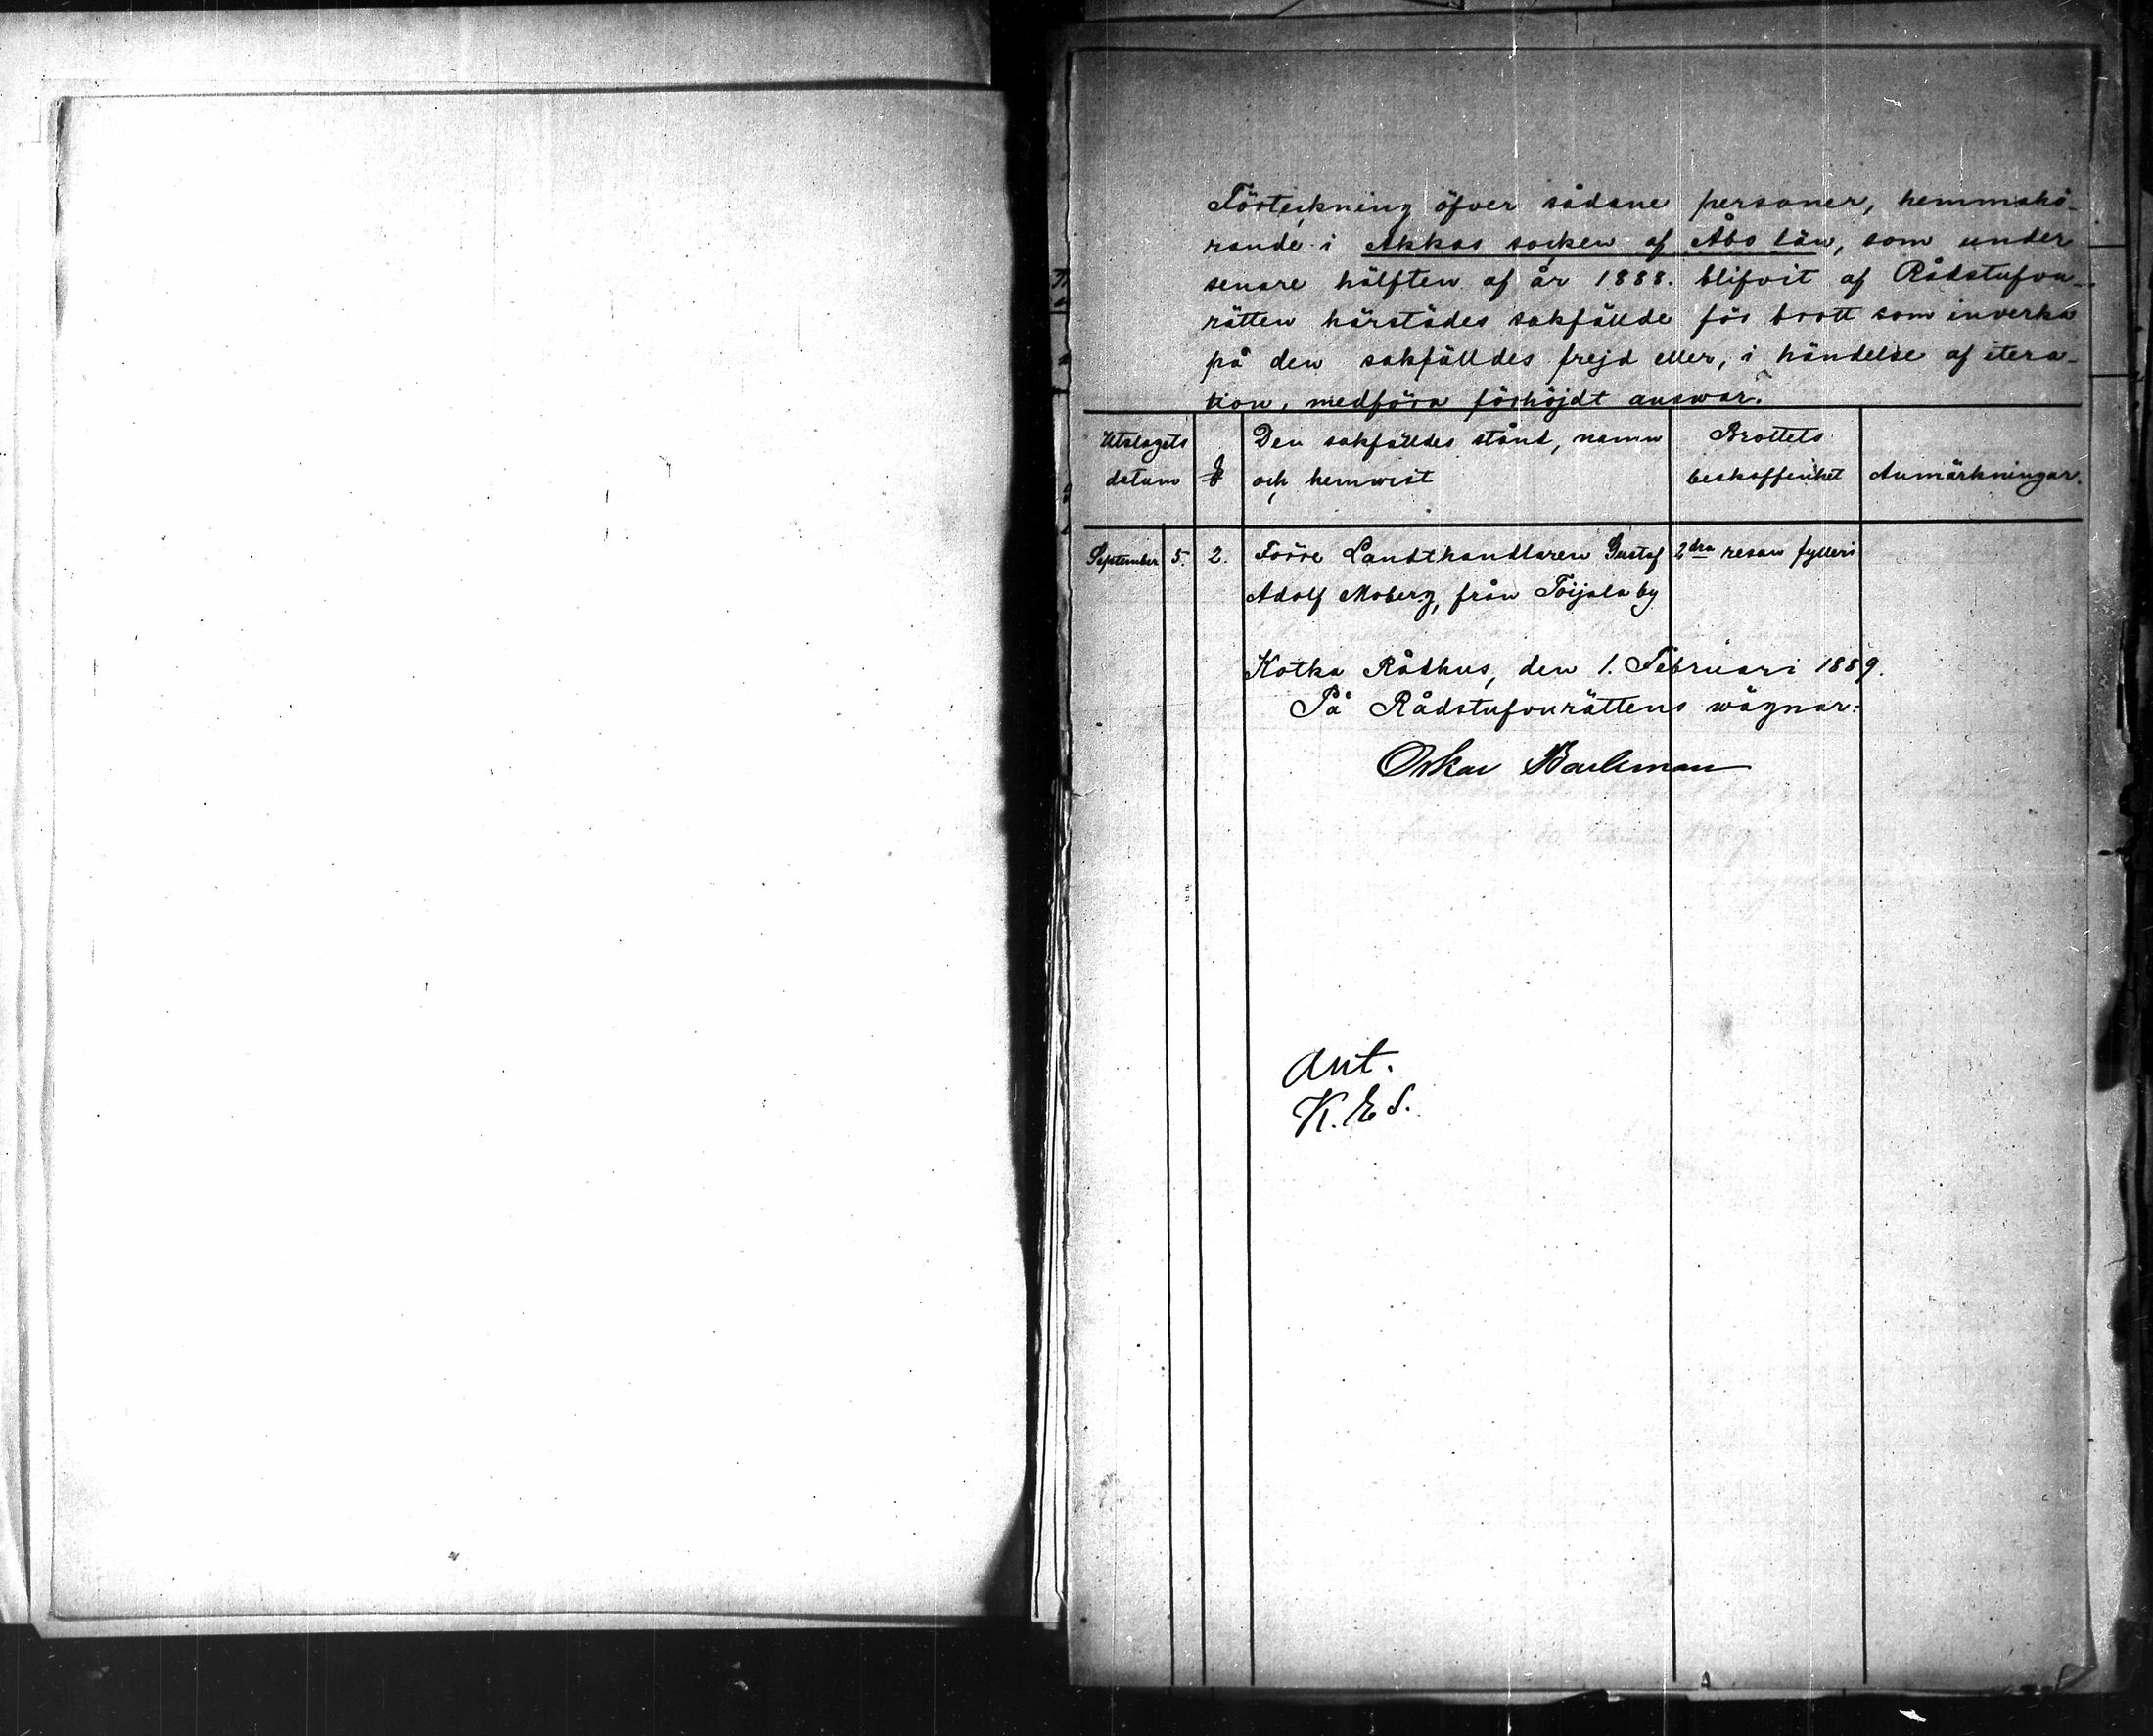 Förteckning öfver sådane personer, hemmahö-
rande i Akkas socken af Åbo län, som under
senare hälften af år 1888. blifvit af Rådstufvu-
rätten härstädes sakfällde för brott som inverka
på den sakfälldes frejd eller, i händelse af itera-
tion, medföra förhöjdt answar.
Utslagets datum
§
Den sakfälldes stånd, namn
och hemwist
Brottets
beskaffenhet
Anmärkningar.
September 5. 2. Förre Landthandlaren Gustaf 2dra resan fylleri
Adolf Moberg, från Toijala by
Kotka Rådhus, den 1. Februari 1889.
På Rådstufvurättens wägnar:
Oskar
Ant.
K. E S.